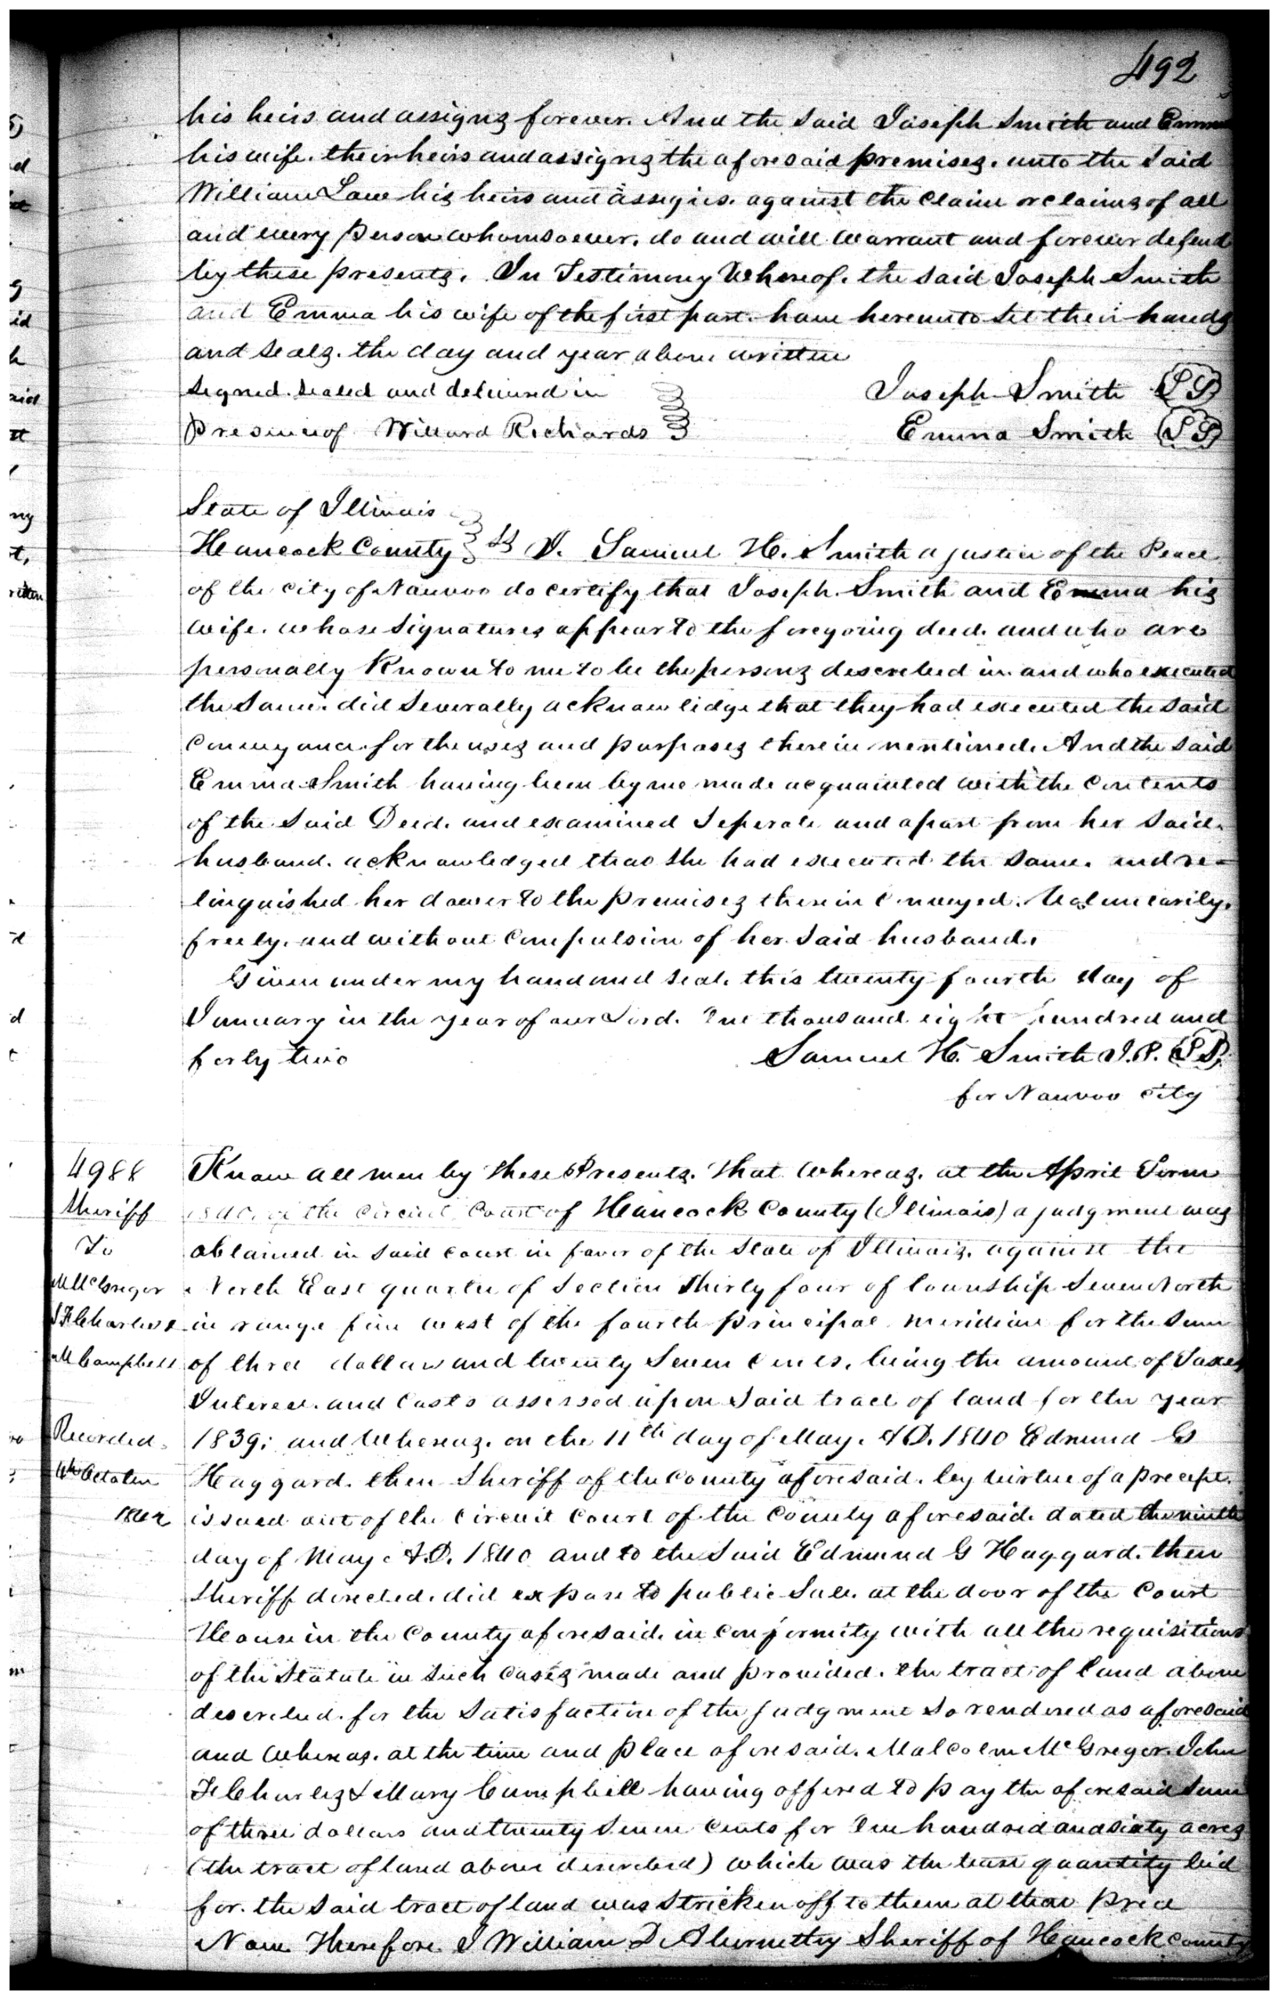 492
his heirs and assigns forever. And the said Joseph Smith and Emma
his wife. their heirs and assigns the aforesaid premises. unto the said
William Law his heirs and assigns. against the claim or claims of all
and every person whomsoever. do and will warrant and forever defend
by these presents. In Testimony Whereof. the said Joseph Smith
and Emma his wife of the first part. have hereunto set their hands
and seals. the day and year above written
Signed. Sealed and delivered in Joseph Smith LS
presence of Willard Richards Emma Smith LS
State of Illinois
Hancock County ss I. Samuel H. Smith a justice of the Peace
of the city of Nauvoo do certify that Joseph Smith and Emma his
wife. whose Signatures appear to the foregoing deed. and who are
personally Known to me to be the persons described in. and who executed
the Same. did Severally acknowledge that they had executed the said
Conveyance. for the uses and purposes therein mentioned. And the said
Emma Smith having been by me made acquainted with the contents
of the said Deed. and examined Seperate and apart from her said.
husband. acknowledged that she had executed the same. and re-
linquished her dower to the premises therein Conveyed. Voluntarily.
freely. and without Compulsion of her said husband.
Given under my hand and seal. this twenty fourth day of
January in the year of our Lord. One thousand eight hundred and
forty two Samuel H. Smith J.P. LS
for Nauvoo City
4988 Know all men by these Presents. That Whereas. at the April Term
Sheriff 1840. of the Circuit Court of Hancock County (Illinois) a judgment was
To obtained in said court in favor of the State of Illinois. against the
M McGregor North East quarter of Section thirty four of township Seven North
J F Charles & in range five west of the fourth principal meridian for the Sum
M Campbell of three dollars and twenty Seven Cents. being the amount of Taxes
Interest. and Costs assessed upon said tract of land for the year
Recorded. 1839; and Whereas. on the 11th day of May. A.D. 1840 Edmund G
4th October Haggard. then Sheriff of the County aforesaid. by virtue of a precept.
1842 issued out of the Circuit Court of the County aforesaid. dated the ninth
day of May. A.D. 1840 and to the said Edmund G Haggard. then
Sheriff directed. did expose to public Sale. at the door of the Court
House in the County aforesaid. in conformity with all the requisitions
of the Statute in Such Cases made and provided. the tract of land above
described. for the Satisfaction of the judgment so rendered as aforesaid
and Whereas. at the time and place aforesaid. Malcolm McGregor. John
F Charles & Mary Campbell having offered to pay the aforesaid Sum
of three dollars and twenty Seven Cents for One hundred and sixty acres
(the tract of land above described) which was the least quantity bid
for. the said tract of land was stricken off to them at that price
Now Therefore. I William D Abernethy Sheriff of Hancock County